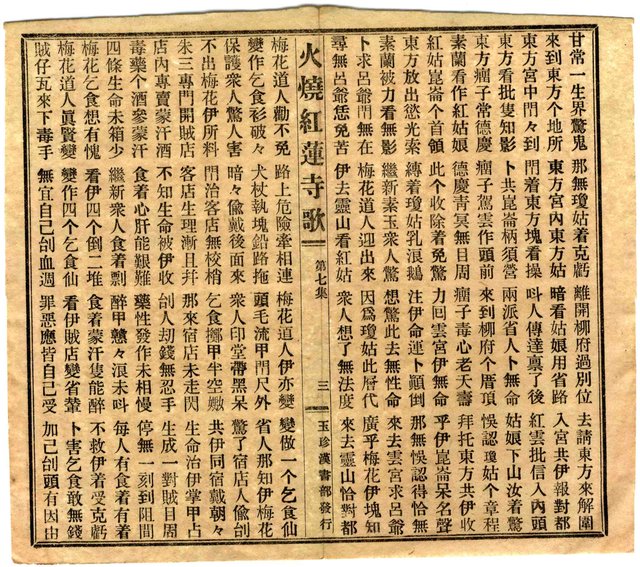 甘常一生界驚鬼　那無瓊姑着克虧　離開柳府過別位　去請東方來解圍
來到東方个地所　東方宮內東方姑　暗看姑娘用省路　入宮共伊報對都
東方宮中門々到　門着東方塊看操　呌人傳達禀了後　紅雲批信入內頭
東方看批隻知影　卜共崑崙柄須營　兩派省人卜無命　姑娘下山汝着驚
東方瘤子常德慶　瘤子駕雲作頭前　來到柳府个厝頂　悞認瓊姑个章程
素蘭看作紅姑娘　德慶青冥無目周　瘤子毒心老天壽　拜托東方共伊收
紅姑崑崙个首領　此个收除着免驚　力回雲宮伊無命　乎伊崑崙呆名聲
東方放出慾光索　縛着瓊姑乳浪鵠　注伊命運卜顛倒　那無悞認得恰無
素蘭被力看無影　繼新素玉衆人驚　想驚此去無性命　來去雲宮求呂爺
卜求呂爺門無在　梅花道人迎出來　因爲瓊姑此層代　廣乎梅花伊塊知
尋無呂爺恁免苦　伊去靈山看紅姑　衆人想了無法度　來去靈山恰對都
火燒紅蓮寺歌　第七集　三　玉珍漢書部發行
梅花道人勸不免　路上危險牽相連　梅花道人伊亦變　變做一个乞食仙
變作乞食彩破々　犬杖執塊鉛路拖　頭毛流甲門尺外　省人那知伊梅花
保護衆人驚人害　暗々偸戴後面來　衆人印堂帶黑呆　驚了宿店人偸刣
不出梅花伊所料　門治客店無校梢　乞食擲甲半空　共伊同宿戴朝々
朱三專門開賊店　客店生理漸且幷　那來宿店未走閃　生命治伊掌甲占
店內專賣蒙汗酒　不知生命被伊收　刣人刧錢無忍手　生成一對賊目周
毒藥个酒參蒙汗　食着心肝能艱難　藥性發作未相慢　停無一刻到阻間
四條生命未箱少　繼新衆人食着剽　醉甲戇々浪未呌　每人有食着有着
梅花乞食想有愧　看伊四个倒二堆　食着蒙汗隻能醉　不救伊着受克虧
梅花道人眞賢變　變作四个乞食仙　看伊賊店變省輦　卜害乞食敢無錢
賊仔瓦來下毒手　無宜自己刣血週　罪惡應皆自己受　加己刣頭有因由